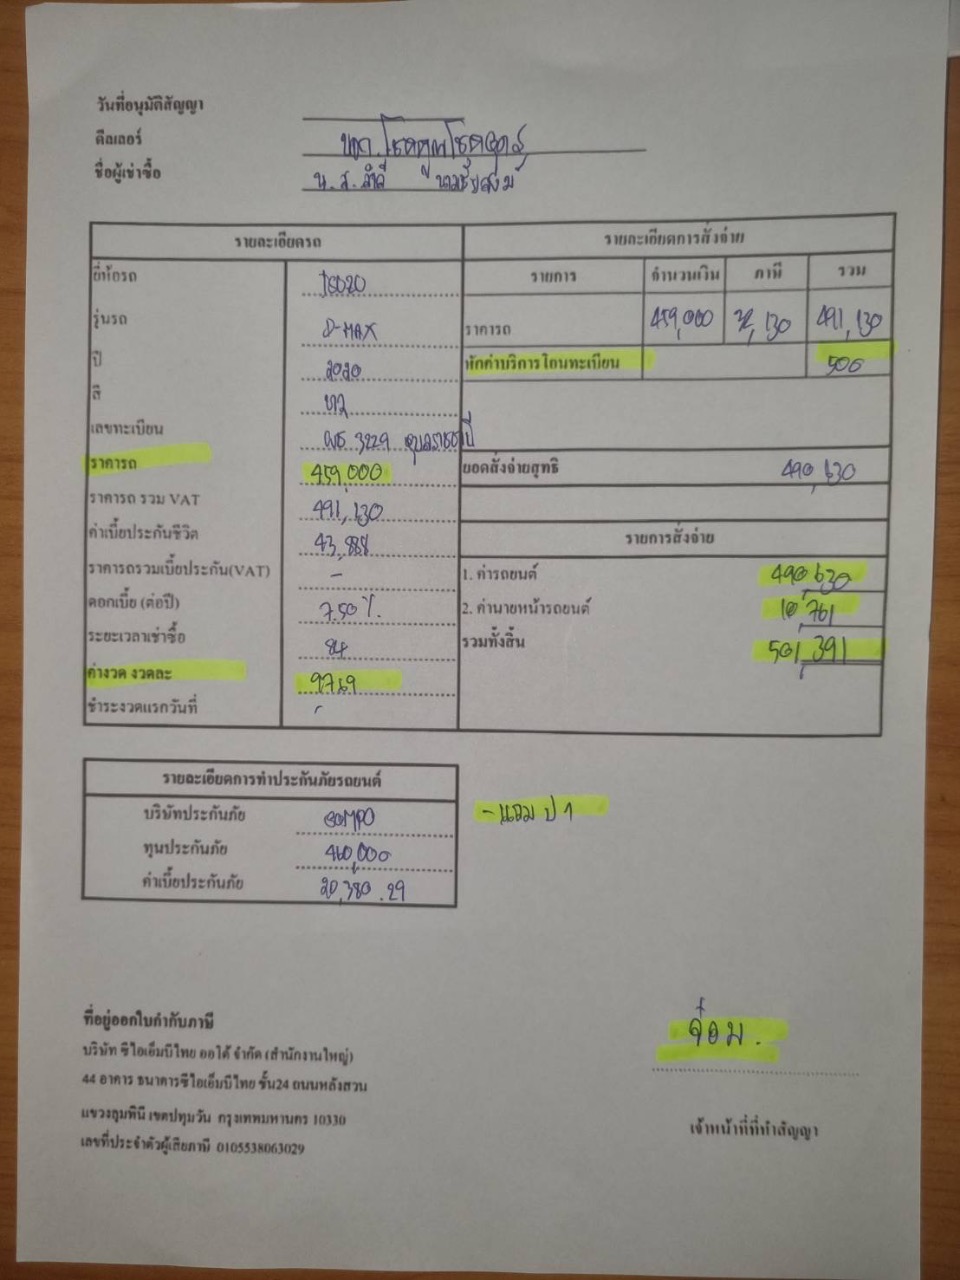 วันที่อนุมัติสัญญา
ดีลเลอร์ บจก.โชคคูณโชค
ชื่อผู้เช่าซื้อ น.ส.
รายละเอียดรถ
ยี่ห้อรถ ISUZU
รุ่นรถ D-MAX
ปี 2020
สี เทา
เลขทะเบียน 3229 อุบลราชธานี
ราคารถ 459,000
ราคารถ รวม VAT 491,130
ค่าเบี้ยประกันชีวิต 43,888
ราคารถรวมเบี้ยประกัน(VAT) -
ดอกเบี้ย (ต่อปี) 7.50 %.
ระยะเวลาเช่าซื้อ 84
ค่างวด งวดละ 9,769
ชำระงวดแรกวันที่
รายละเอียดการสั่งจ่าย
รายการ จำนวนเงิน ภาษี รวม
ราคารถ 459,000 32,130 491,130
หักค่าบริการโอนทะเบียน 500
ยอดสั่งจ่ายสุทธิ 490,630
รายการสั่งจ่าย
1. ค่ารถยนต์ 490,630
2. ค่านายหน้ารถยนต์ 10,761
รวมทั้งสิ้น 501,391
รายละเอียดการทำประกันภัยรถยนต์
บริษัทประกันภัย SOMPO
ทุนประกันภัย 460,000
ค่าเบี้ยประกันภัย 20,380.29
- แถม ป 1
ที่อยู่ออกใบกำกับภาษี
บริษัท ซีไอเอ็มบีไทย ออโต้ จำกัด (สำนักงานใหญ่)
44 อาคาร ธนาคารซีไอเอ็มบีไทย ชั้น24 ถนนหลังสวน
แขวงลุมพินี เขตปทุมวัน กรุงเทพมหานคร 10330
เลขที่ประจำตัวผู้เสียภาษี 0105538063029
จ๋อม.
เจ้าหน้าที่ที่ทำสัญญา